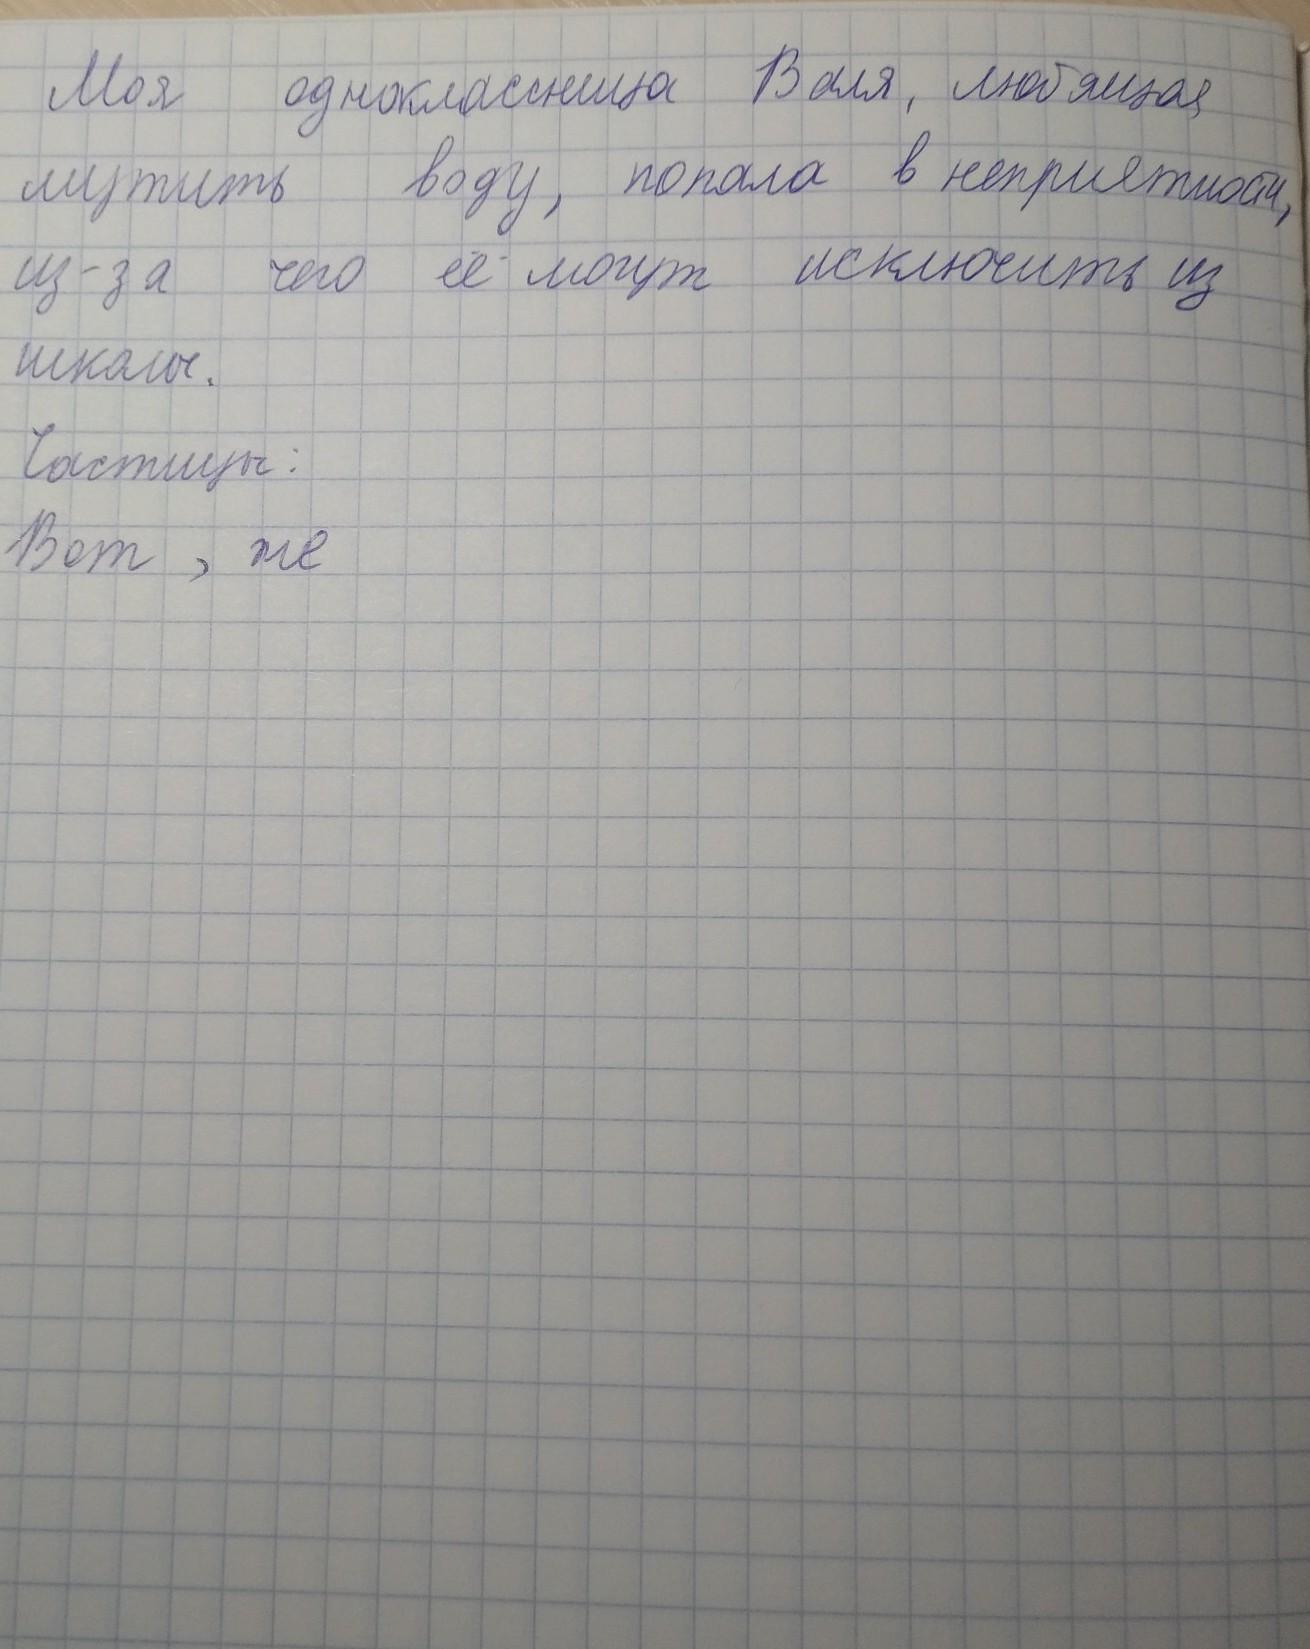 Моя одноклассница Валя, любящая
мутить воду, попала в неприятности,
из-за чего её могут исключить из
школы.
Частицы:
Вот, же